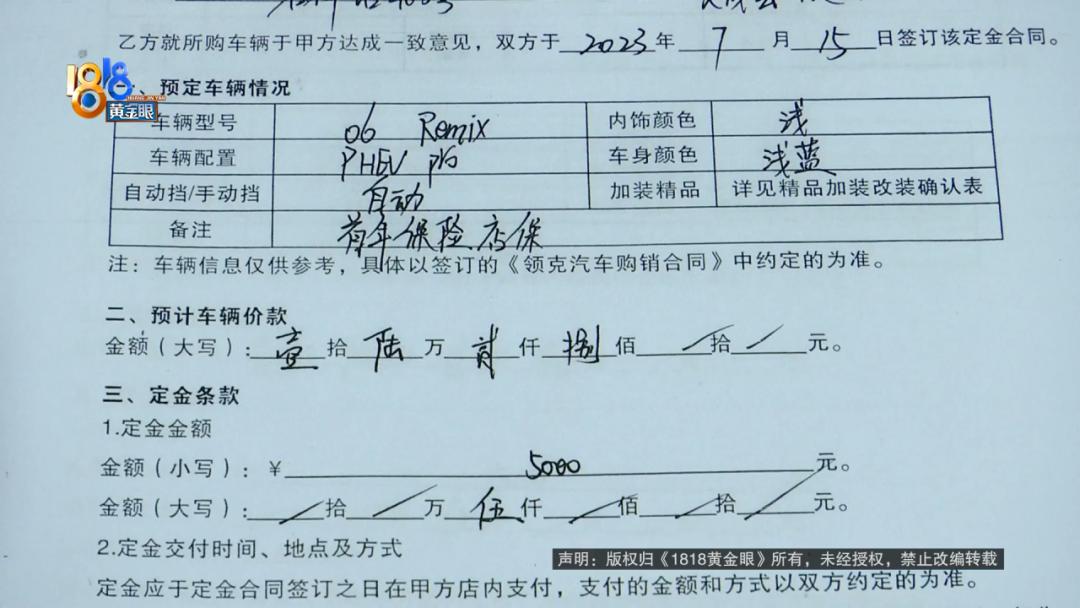 乙方就所购车辆于甲方达成一致意见，双方于 2023 年 7 月 15 日签订该定金合同。
1818
黄金眼
一、预定车辆情况
车辆型号 06 Remix 内饰颜色 浅
车辆配置 PHEV pro 车身颜色 浅蓝
自动挡/手动挡 自动 加装精品 详见精品加装改装确认表
备注 首年保险店保
注：车辆信息仅供参考，具体以签订的《领克汽车购销合同》中约定的为准。
二、预计车辆价款
金额（大写）：壹 拾 陆 万 贰 仟 捌 佰 / 拾 / 元。
三、定金条款
1.定金金额
金额（小写）：￥ 5000 元。
金额（大写）：/ 拾 / 万 伍 仟 / 佰 / 拾 / 元。
2.定金交付时间、地点及方式
声明：版权归《1818黄金眼》所有，未经授权，禁止改编转载
定金应于定金合同签订之日在甲方店内支付，支付的金额和方式以双方约定的为准。